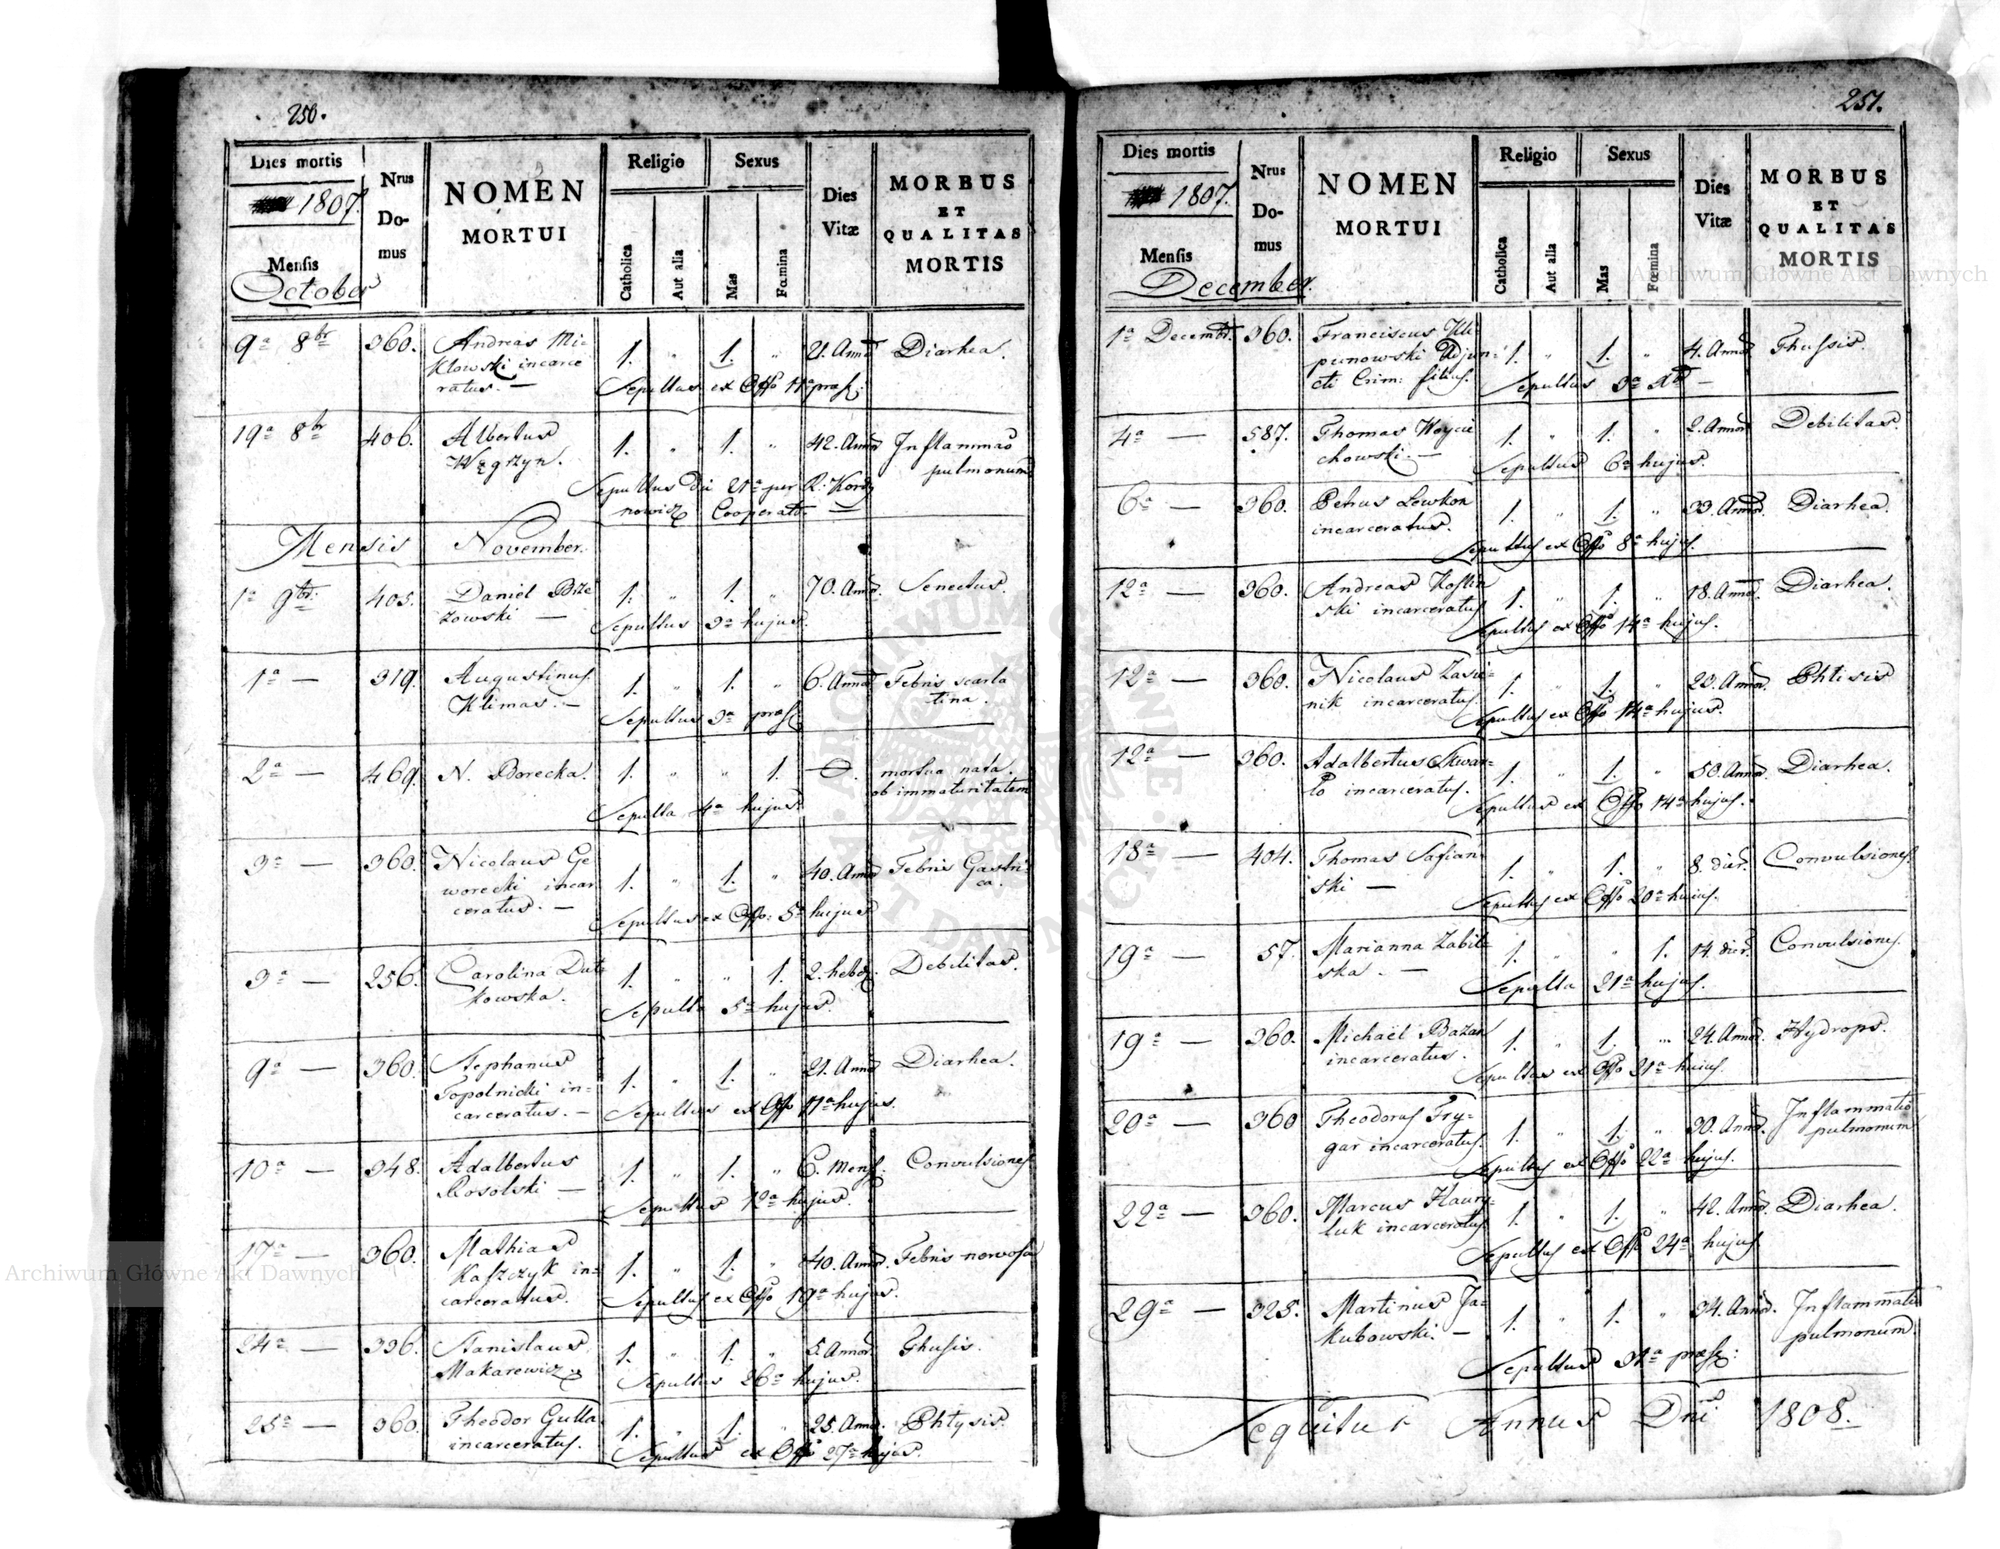 250.
Dies mortis
1807.
Mensis
October
Nrus Domus
NOMEN MORTUI
Religio
Catholica
Aut alia
Sexus
Mas
Fœmina
Dies Vitæ
MORBUS ET QUALITAS MORTIS
9a 8br 360. Andreas Mi- 1. " 1. " 21. Annor Diarhea.
klowski incarce
ratus. — Sepultus ex Offo 11a præs:
19a 8br 406. Albertus 1. " 1. " 42. Annor Inflammao
Węgrzyn. pulmonum
Sepultus Die 21a per R. Kordy
nowicz Cooperato. —
Mensis November.
1a 9br: 405. Daniel Brze 1. " 1. " 70. Annor. Senectus.
zowski — Sepultus 3a hujus.
1a — 319. Augustinus 1. " 1. " 6. Annor Febris scarla
Klimas. — tina.
Sepultus 3a præs
2a — 469. N. Borecka. 1. " " 1. —0. mortua nata.
ob immaturitatem
Sepulta 4a hujus
3a — 360. Nicolaus Ge 1. " 1. " 40. Annor Febris Gastri-
worecki incar ca.
ceratus. — Sepultus ex Offo: 5a hujus
3a — 256. Carolina Dut 1. " " 1. 2. hebd. Debilitas.
kowska. Sepulta 5a hujus.
9a — 360. Stephanus 1. " 1. " 21. Annor Diarhea.
Topolnicki in-
carceratus. — Sepultus ex Offo 11a hujus.
10a — 348. Adalbertus 1. " 1. " 6. Mens. Convulsiones
Rosolski — Sepultus 12a hujus.
17a — 360. Mathias 1. " 1. " 40. Annor. Febris nervosa
Kaszczyk in-
carceratus. Sepultus ex Offo 19a hujus.
24a — 336. Stanislaus 1. " 1. " 5. Annor.
Makarewicz Sepultus 26a hujus.
25a — 360. Theodor Gulla 1. " 1. " 25. Annor. Phtysis.
incarceratus. Sepultus ex Offo 27a hujus.
251.
Dies mortis
1807.
Mensis
December.
Nrus Domus
NOMEN MORTUI
Religio
Catholica
Aut alia
Sexus
Mas
Fœmina
Dies Vitæ
MORBUS ET QUALITAS MORTIS
1a Decembr. 360. Franciscus 1. " 1. " 4. Annor Thussis.
Adjun:
cti Crim: filius. Sepultus 3a
4a — 587. Thomas Woyci 1. " 1. " 2. Annor Debilitas.
chowski. — Sepultus 6a hujus.
6a — 360. Petrus Lewkon 1. " 1. " 33. Annor. Diarhea.
incarceratus. Sepultus ex Offo 8a hujus.
12a — 360. Andreas Koslin 1. " 1. " 18. Annor. Diarhea.
ski incarceratus Sepultus ex Offo 14a hujus.
12a — 360. Nicolaus Zasie- 1. " 1. " 23. Annor. Phtisis
nik incarceratus. Sepultus ex Offo 14a hujus.
12a — 360. Adalbertus Skwar- 1. " 1. " 50. Annor. Diarhea.
ło incarceratus. Sepultus ex Offo 14a hujus.
18a — 404. Thomas Safian- 1. " 1. " 8. dier. Convulsiones.
ski — Sepultus ex Offo 20a hujus.
19a — 57. Marianna Zabil- 1. " " 1. 14. dier. Convulsiones.
ska. — Sepulta 21a hujus.
19a — 360. Michael Bazan 1. " 1. " 24. Annor. Hydrops.
incarceratus. Sepultus ex Offo 21a hujus.
20a — 360 Theodorus Fry- 1. " 1. " 30. Annor. Inflammatio
gar incarceratus. pulmonum
Sepultus ex Offo 22a hujus.
22a — 360. Marcus Hawry- 1. " 1. " 42. Annor. Diarhea.
luk incarceratus Sepultus ex Offo 24a hujus
29a — 325. Martinus Ja- 1. " 1. " 34. Annor. Inflammatio
kubowski. — pulmonum.
Sepultus 31a præs:
Sequitur Annus Dni. 1808.
Archiwum Główne Akt Dawnych
Archiwum Główne Akt Dawnych
ARCHIWUM GŁÓWNE AKT DAWNYCH